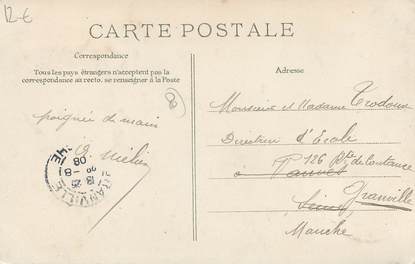 CARTE POSTALE
Correspondance
Tous les pays étrangers n'acceptent pas la
correspondance au recto. se renseigner à la Poste
Adresse
poignée de main
Monsieur et Madame
Directeur d'Ecole
126 Rte de Coutances
à
Granville
Manche
GRANVILLE
08